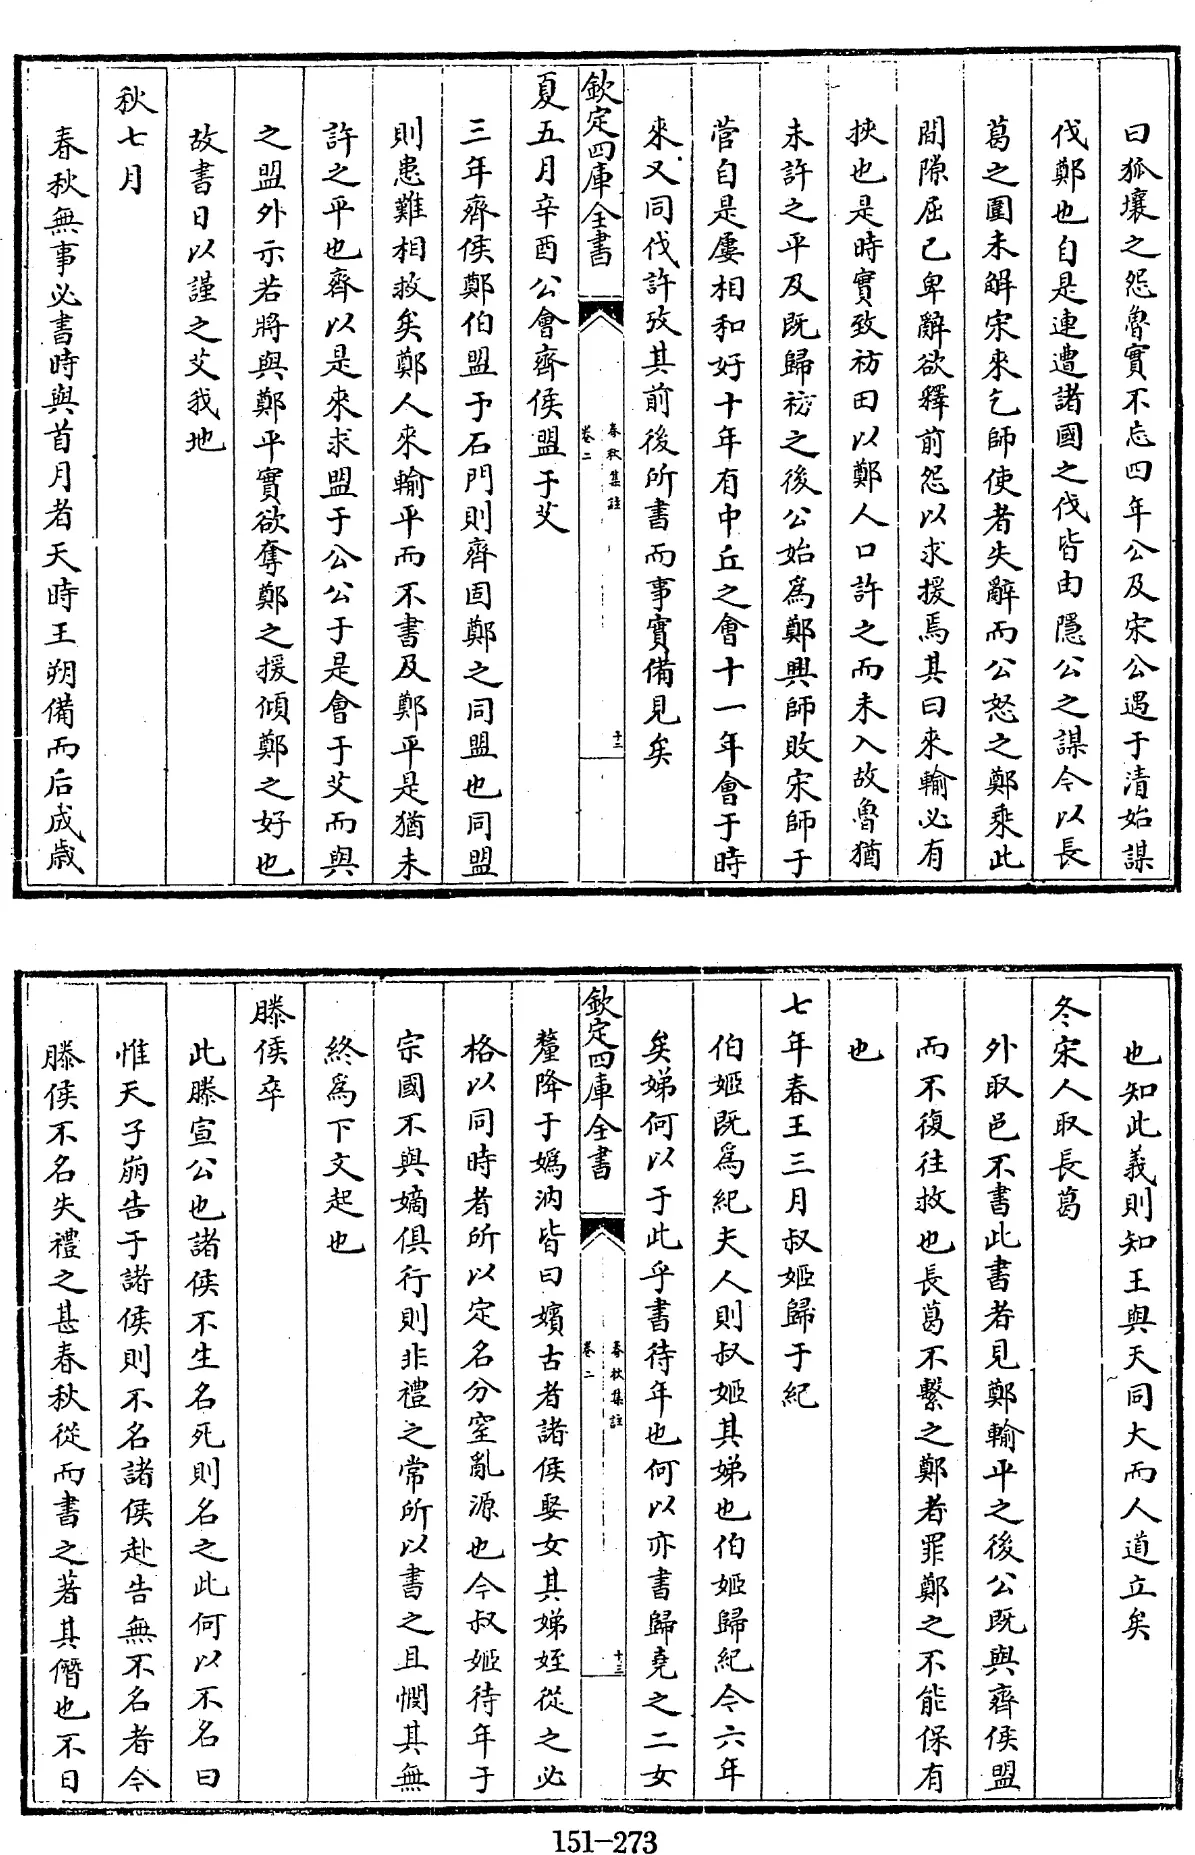 曰狐壤之怨魯實不忘四年公及宋公遇于清始謀
伐鄭也自是連遭諸國之伐皆由隱公之謀今以長
葛之圍未解宋來乞師使者失辭而公怒之鄭乘此
間隙屈己卑辭欲釋前怨以求援焉其曰來輸必有
挾也是時實致祊田以鄭人口許之而未入故魯猶
未許之平及既歸祊之後公始為鄭興師敗宋師于
菅自是屢相和好十年有中丘之會十一年會于時
來又同伐許攷其前後所書而事實備見矣
欽定四庫全書
春秋集註
卷二
十三
夏五月辛酉公會齊侯盟于艾
三年齊侯鄭伯盟于石門則齊固鄭之同盟也同盟
則患難相救矣鄭人來輸平而不書及鄭平是猶未
許之平也齊以是來求盟于公公于是會于艾而與
之盟外示若將與鄭平實欲奪鄭之援傾鄭之好也
故書日以謹之艾我地
秋七月
春秋無事必書時與首月者天時王朔備而后成歲
也知此義則知王與天同大而人道立矣
冬宋人取長葛
外取邑不書此書者見鄭輸平之後公既與齊侯盟
而不復往救也長葛不繫之鄭者罪鄭之不能保有
也
七年春王三月叔姬歸于紀
伯姬既為紀夫人則叔姬其娣也伯姬歸紀今六年
矣娣何以于此乎書待年也何以亦書歸堯之二女
欽定四庫全書
春秋集註
卷二
十三
釐降于媯汭皆曰嬪古者諸侯娶女其娣姪從之必
格以同時者所以定名分窒亂源也今叔姬待年于
宗國不與嫡俱行則非禮之常所以書之且憫其無
終為下文起也
滕侯卒
此滕宣公也諸侯不生名死則名之此何以不名曰
惟天子崩告于諸侯則不名諸侯赴告無不名者今
滕侯不名失禮之甚春秋從而書之著其僭也不日
151-273